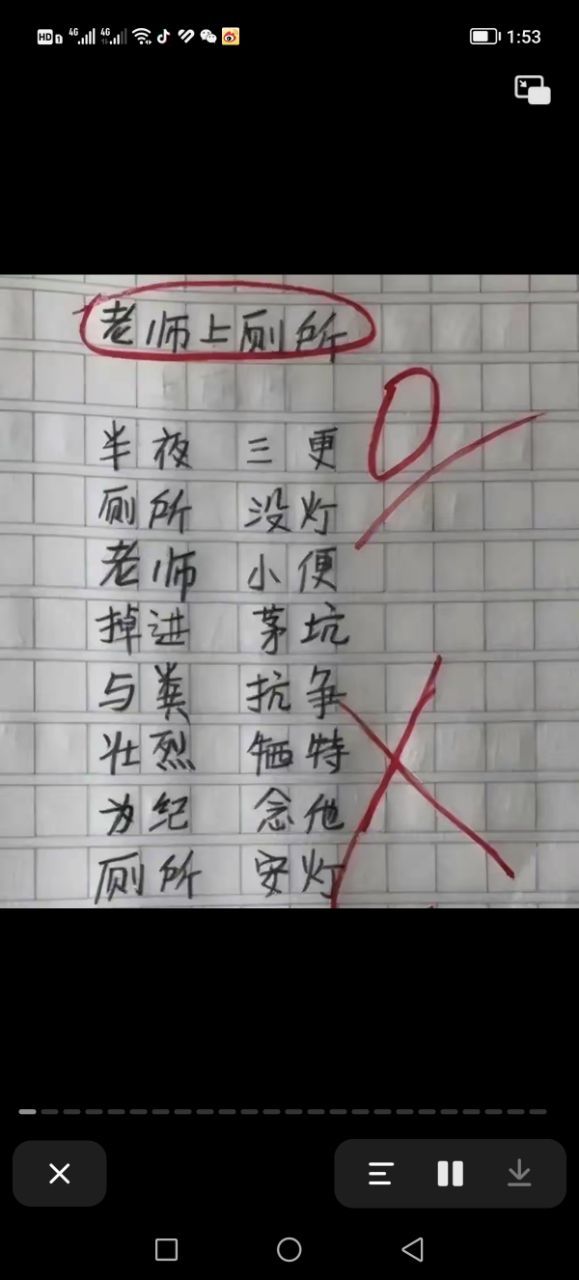 HD 1 4G 4G 1:53
老师上厕所
0
半夜 三更
厕所 没灯
老师 小便
掉进 茅坑
与粪 抗争
壮烈 牺特
为纪 念他
厕所 安灯